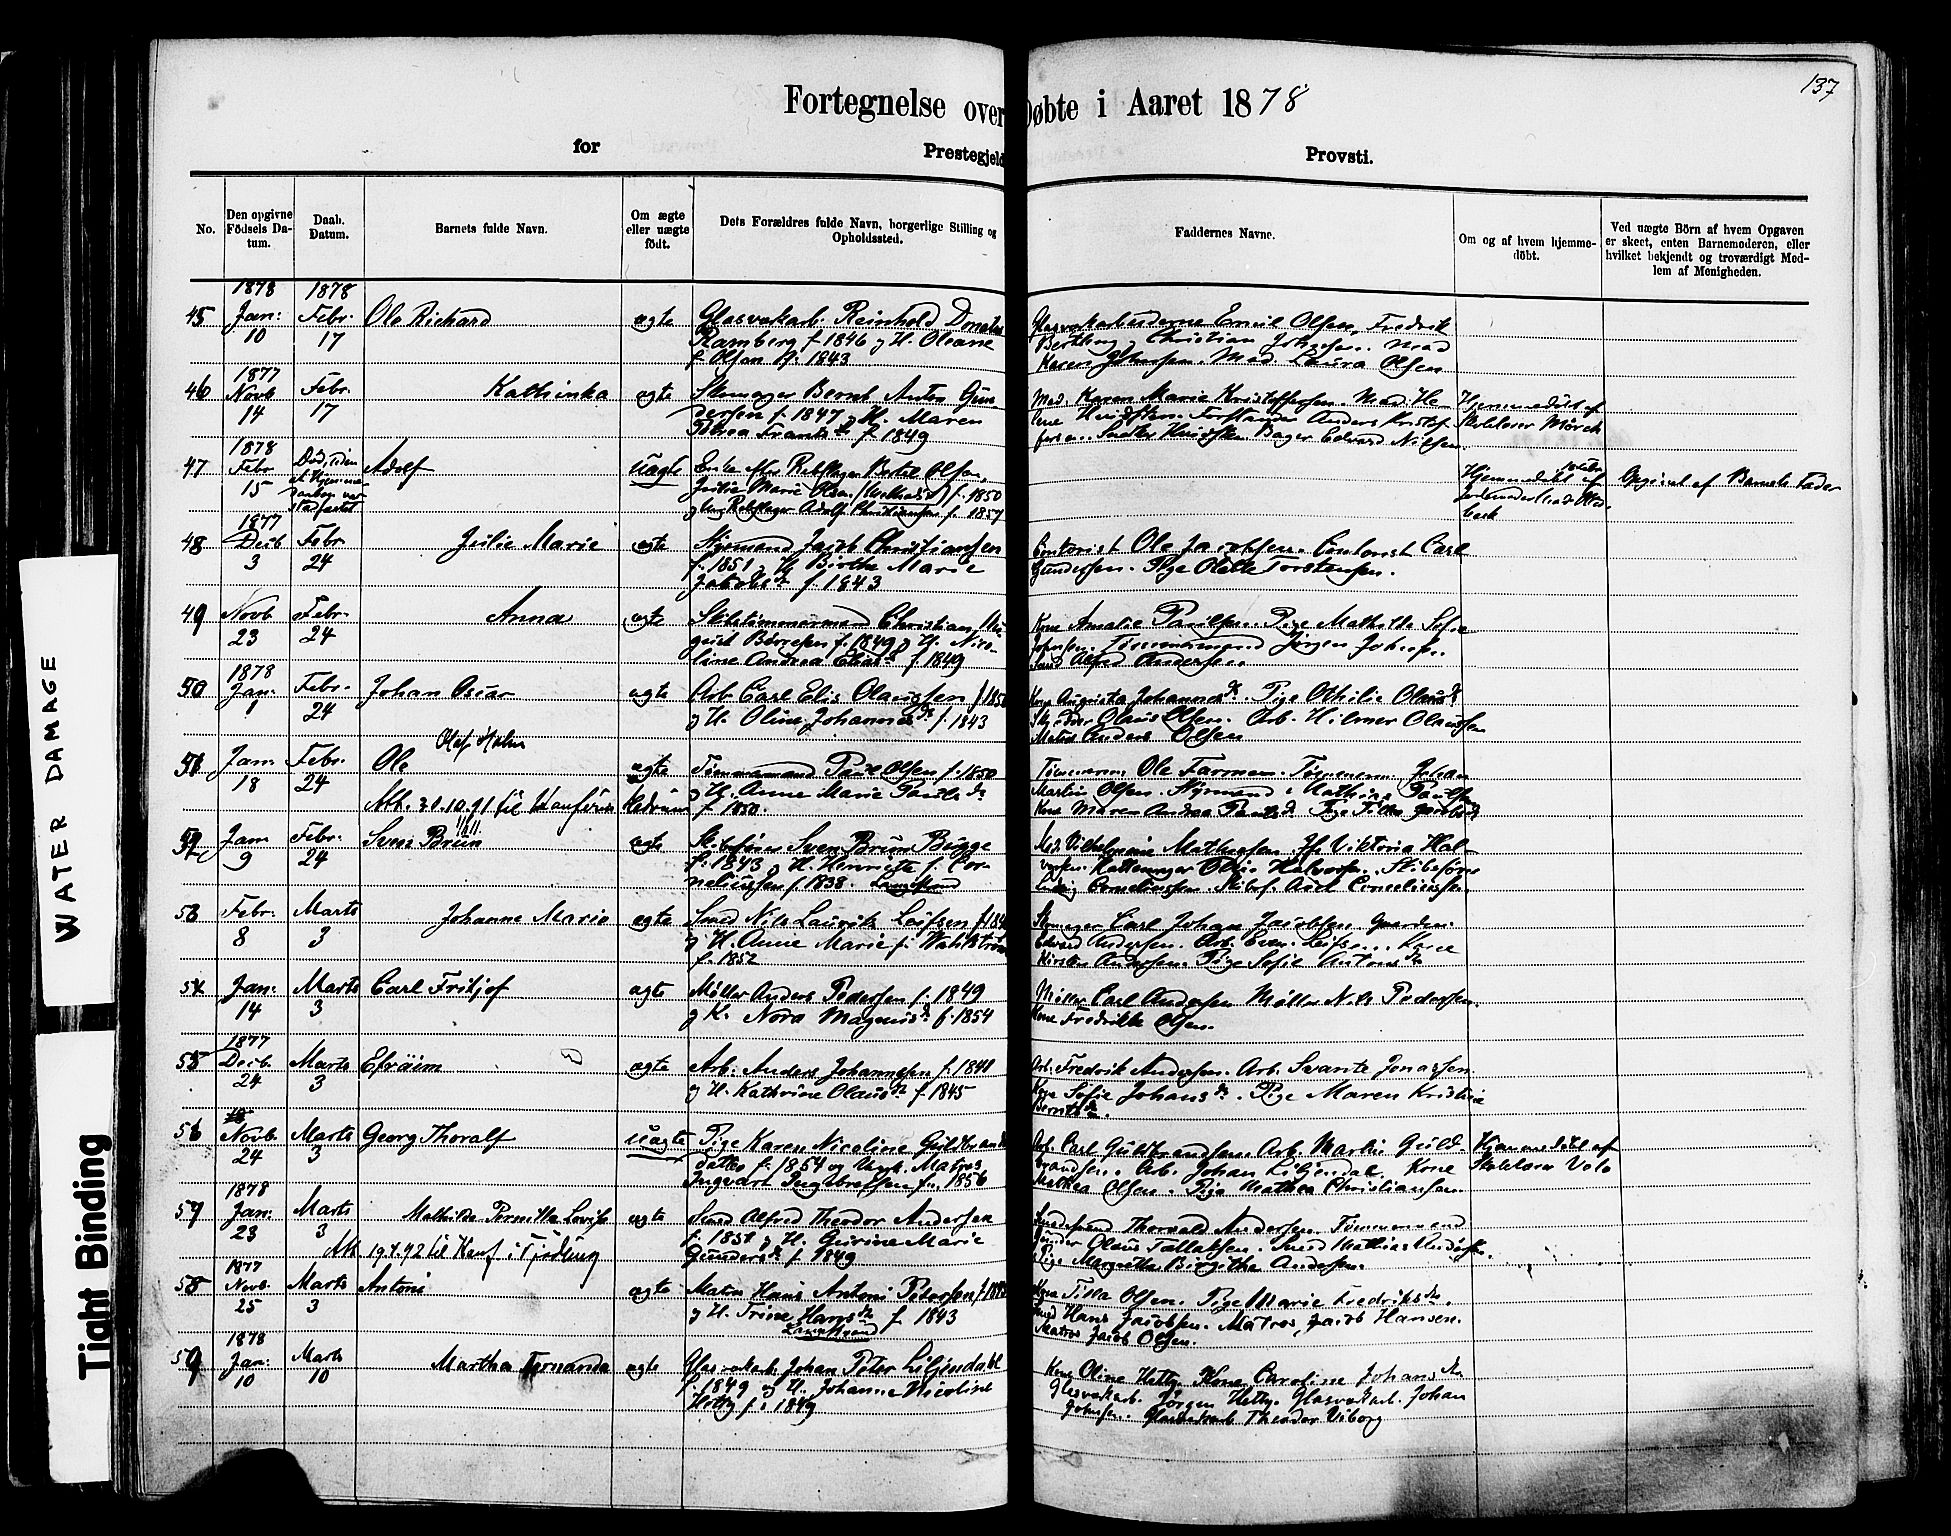 137
Fortegnelse over Døbte i Aaret 1878
for Prestegjeld Provsti.
No.
Den opgivne Födsels Datum.
Daab. Datum.
Barnets fulde Navn.
Om ægte eller uægte födt.
Dets Forældres fulde Navn, borgerlige Stilling og Opholdssted.
Faddernes Navne.
Om og af hvem hjemmedöbt.
Ved uægte Börn af hvem Opgaven er skeet, enten Barnemoderen, eller hvilket bekjendt og troværdigt Medlem af Menigheden.
1878 1878
45 Jan: 10 Febr. 17 Ole Richard ægte
Glasværkarb. Reinhold Donatus
Ramberg f. 1846 og H. Oleane
f. Olsen f. 1843
Glasværkarbeiderne Emil Olsen, Fredrik
Christian Johnsen. Mad
Karen Johnsen. Mad. Laura Olsen
1877
46 Novb 14 Febr. 17 Kathinka ægte
Skomager Bernt Anton Gun-
dersen f. 1847 og H. Maren
f. 1849
Mad. Karen Marie Kristoffersen. Mad He-
lene Forstander Anders Kristof-
fersen. Bager Edvard Nilsen
Hjemmedöbt af
Skolelærer Mörch
1878
47 Febr 15 Adolf uægte
Enke efter Rebslager Bertel Olsen,
Julie Marie Olsen f. 1850
og Ung. Rebslager Adolf Christiansen f. 1857
Hjemmedöbt af
Opgivet af Barnets Fader
1877
48 Decb 3 Febr 24 Julie Marie ægte
Sjömand Jacob Christiansen
f. 1851 og H. Birthe Marie
f. 1843
Contorist Ole Jacobsen. Contorist Carl
Gundersen. Pige Olette Torstensen.
49 Novb 23 Febr. 24 Anna ægte
Skibstömmermand Christian
Börresen f. 1849 og H. Nico-
line Andrea Eliasd. f. 1849
Kone Amalie Paulsen. Pige Mathilde Sofie
Johnsen. Tömmermand Jörgen Johns.
Smed Alfred Andersen
1878
50 Jan. 1 Febr. 24 Johan Oscar ægte
Arb Carl Elis Olaussen f. 185
og H. Oline Johannesd. f. 1843
Kone Augusta Johannesd. Pige Othilie Olausd.
Skrædder Olaus Olsen. Arb. Hilmer Olaussen
Matros Anders Olsen
Olaf Holm
51 Jan. 18 Febr. 24 Ole ægte
Att. 30.10.91 til Konfirm
Tömmermand Paul Olsen f. 1850
og H. Anne Marie Paulsd.
f. 1850.
Tömmerm. Ole Farmen. Tömmerm. Johan
Martin Olsen. Sjömand Mathias Paulsen
Kone Maren Andrea Paulsd. Pige Tilla Jacobsd.
52 Jan 9 Febr. 24 Sven Brun ægte
Skibsförer Sven Brun Bugge
f. 1843 og H. Henriette f. Cor-
neliussen f. 1838. Langestrand
Mad. Vilhelmine Mathiesen. Fr Viktoria Hal-
vorsen. Hattemager Halvorsen. Skibsförer
Ludvig Corneliussen. Skibsf. Axel Corneliussen
53 Febr. 8 Marts 3 Johanne Marie ægte
Smed Nils Lauritz Leifsen f. 184
og H. Anne Marie f. Wahlström
f. 1852
Skomager Carl Johan Jacobsen. Gaarden.
Edvard Andersen. Arb. Even Leifsen. Kone
Kirsten Andersen. Pige Sofie Antonsd.
54 Jan: 14 Marts 3 Carl Fritjof ægte
Møller Anders Pedersen f. 1849
og K. Nora Magnusd. f. 1854
Møller Carl Andersen Møller Nils Pedersen.
Kone Fredrikke Olsen.
1877
55 Decb. 24 Marts 3 Efraim ægte
Arb: Anders Johannesen f. 1841
og H. Kathrine Olausd. f. 1845
Arb. Fredrik Andersen. Arb. Svante Jonassen.
Kone Sofie Johansd. Pige Maren Kristine
Berntsd.
56 Novb. 24 Marts 3 Georg Thoralf uægte
Pige Karen Nicoline Guldbrands-
datter f. 1854 og Ungk. Matros
Ingvart Ingebretsen f. 1856
Arb. Carl Guldbrandsen. Arb. Martin Guld-
brandsen. Arb. Johan Liljendal. Kone
Mathea Olsen. Pige Mathea Christiansen.
Hjemmedöbt af
Skolelærer Velo
1878
57 Jan: 23 Marts 3 Mathilde Pernille Lovise ægte
Att 19.4.92 til Konf i Tjödling
Smed Alfred Theodor Andersen
f. 1851 og H. Gurine Marie
Gundersd. f. 1849
Thorvald Andersen. Tömmermand
Gunder Olaus Tallaksen. Smed Mathias
Pige Margrethe Birgithe Andersen.
1877
58 Novb. 25 Marts 3 Antoni ægte
Matros Hans Antoni Petersen f.
og H. Trine Hansd. f. 1843
Langestrand
Kone Tilla Olsen. Pige Marie Fredriksd.
Smed Hans Jacobsen. Matros Jacob Hansen.
Matros Jacob Olsen.
1878
59 Jan: 10 Marts 10 Martha Fernanda ægte
Glasværkarb. Johan Peter Liljendahl
f. 1849 og H. Johanne Nicoline
Hetty f. 1849
Kone Oline Hetty. Kone Caroline Johansd.
Glasværkarb. Jörgen Hetty. Glasværkarb. Johan
Johnsen. Glasværkarb Theodor Viborg
WATER DAMAGE
Tight Binding